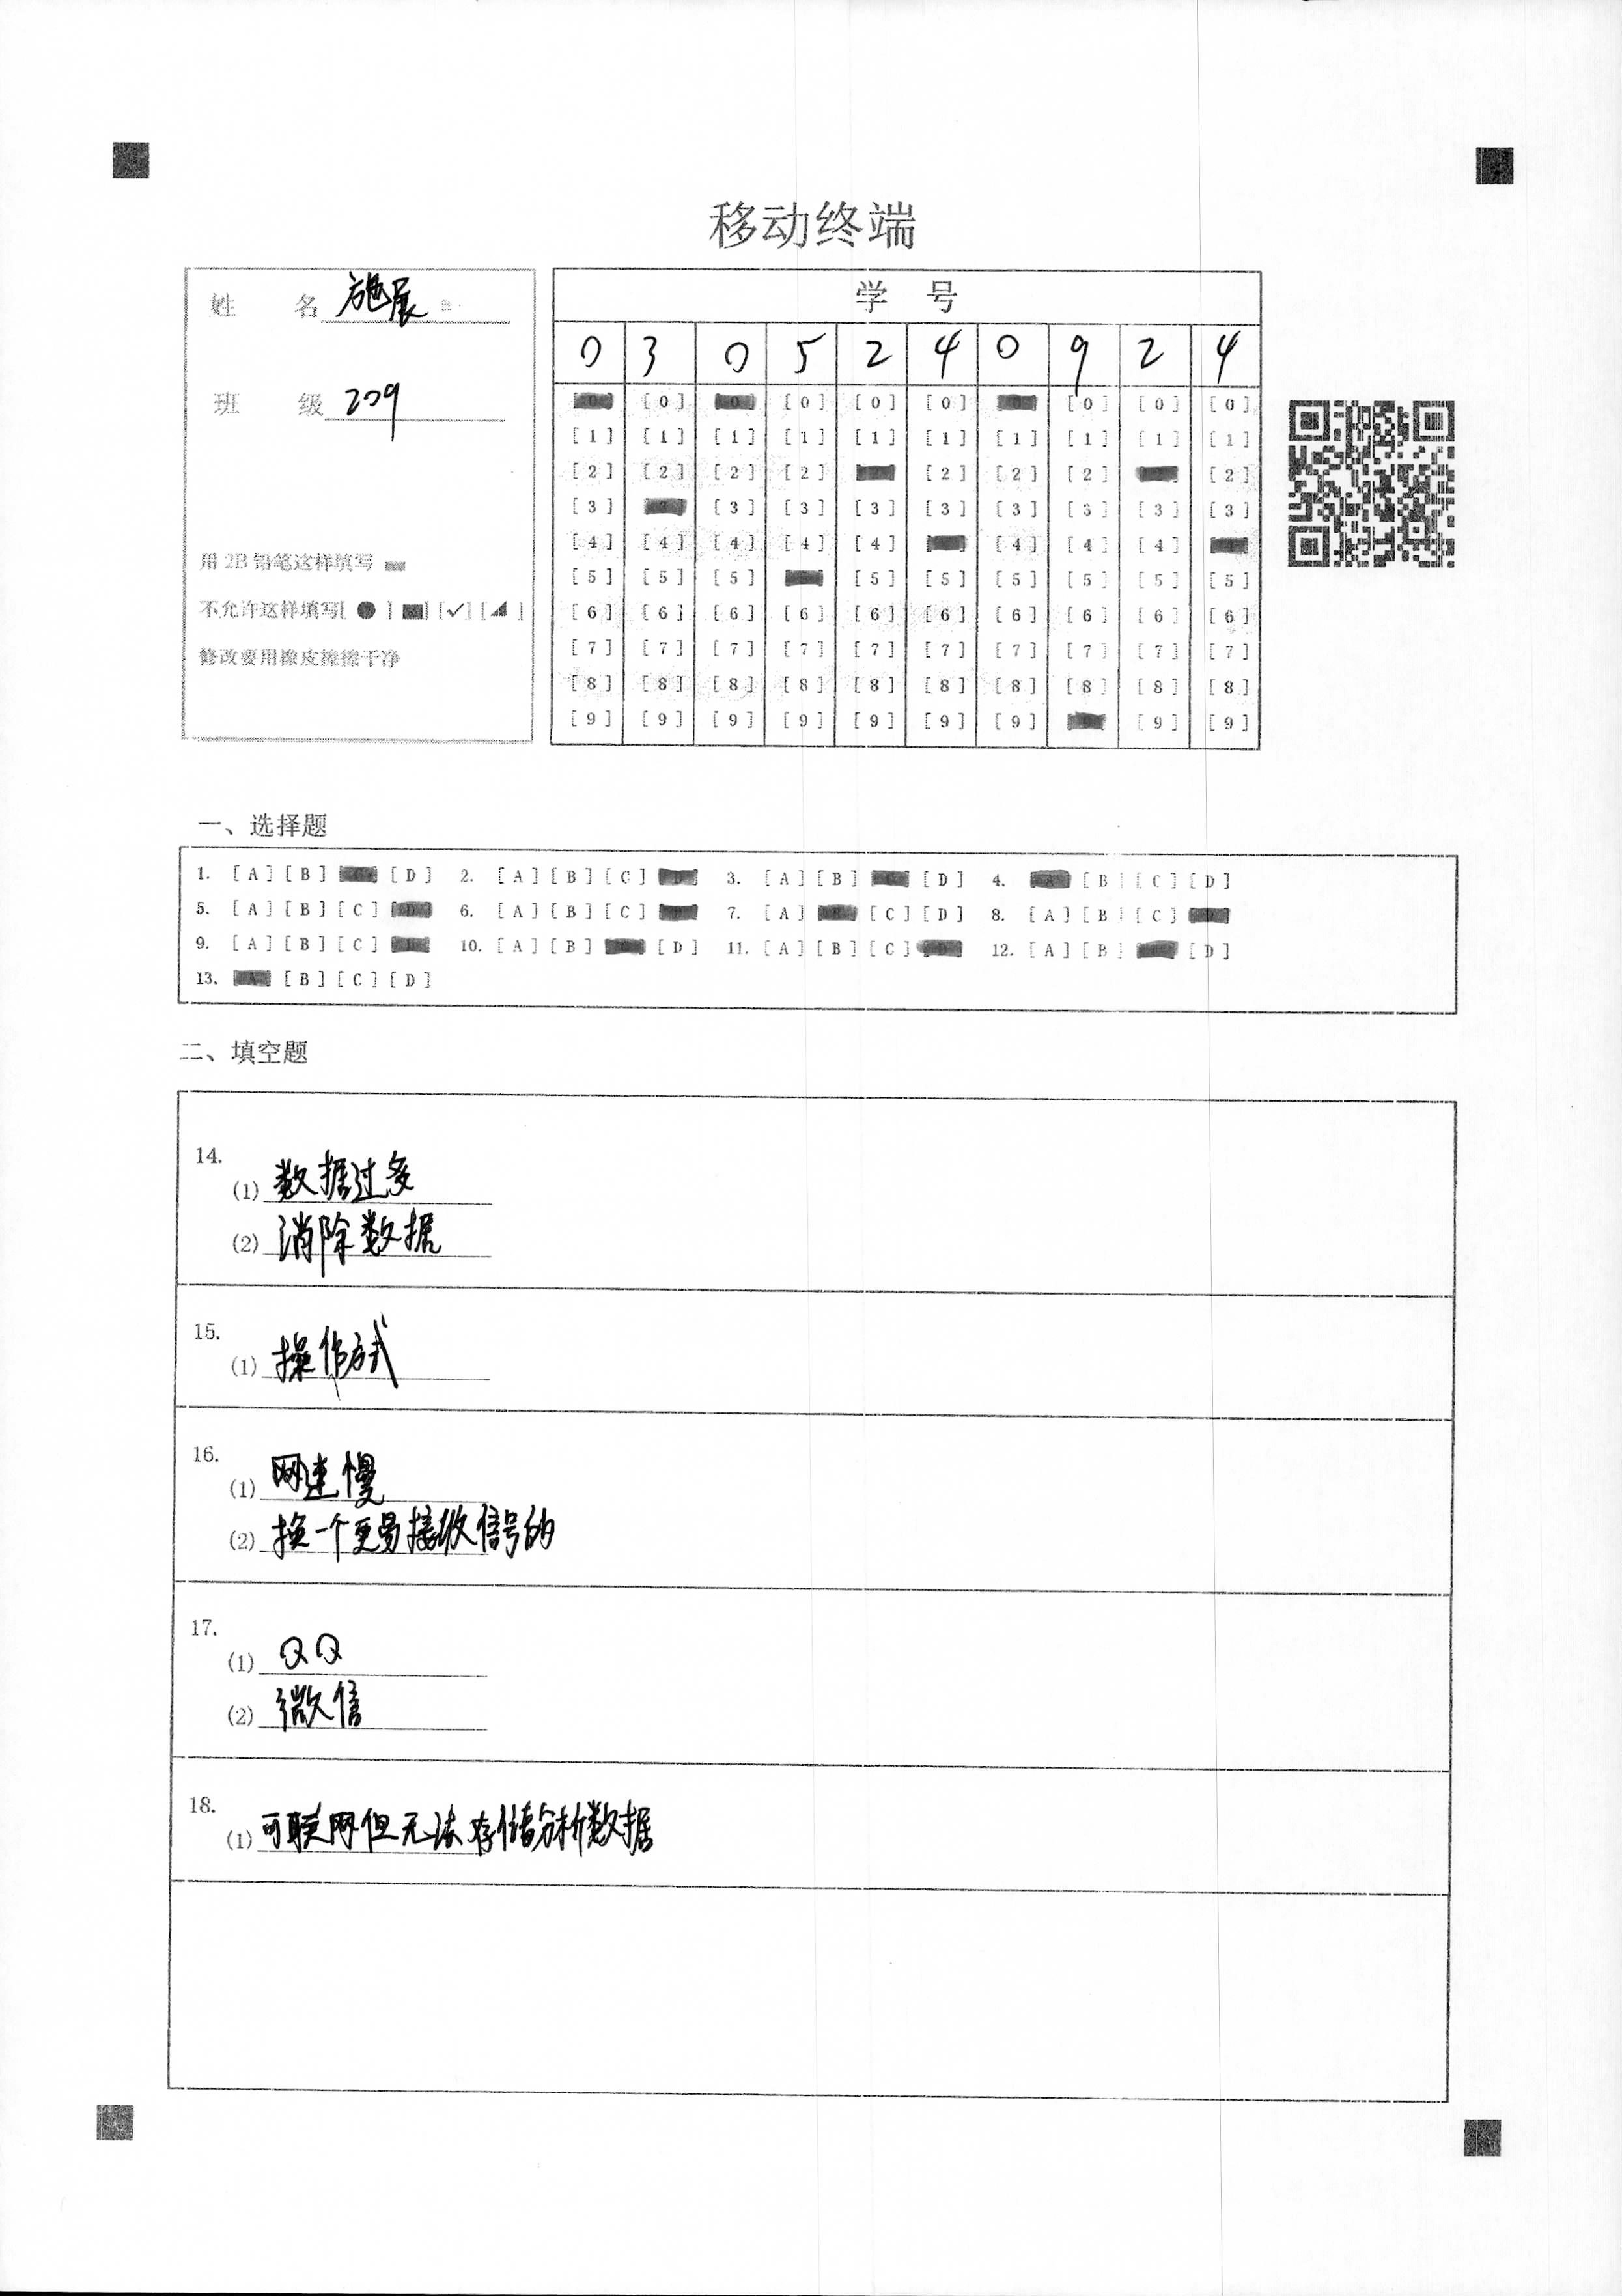 移动终端
姓 名 施展
班 级 209
用 2B 铅笔这样填写
不允许这样填写[ ● ] [■] [✓] [◢ ]
修改要用橡皮擦擦干净
学 号
0 3 0 5 2 4 0 9 2 4
[0] [0] [0] [0] [0] [0] [0] [0] [0] [0]
[1] [1] [1] [1] [1] [1] [1] [1] [1] [1]
[2] [2] [2] [2] [2] [2] [2] [2] [2] [2]
[3] [3] [3] [3] [3] [3] [3] [3] [3] [3]
[4] [4] [4] [4] [4] [4] [4] [4] [4] [4]
[5] [5] [5] [5] [5] [5] [5] [5] [5] [5]
[6] [6] [6] [6] [6] [6] [6] [6] [6] [6]
[7] [7] [7] [7] [7] [7] [7] [7] [7] [7]
[8] [8] [8] [8] [8] [8] [8] [8] [8] [8]
[9] [9] [9] [9] [9] [9] [9] [9] [9] [9]
一、选择题
1. [A] [B] [C] [D] 2. [A] [B] [C] [D] 3. [A] [B] [C] [D] 4. [A] [B] [C] [D]
5. [A] [B] [C] [D] 6. [A] [B] [C] [D] 7. [A] [B] [C] [D] 8. [A] [B] [C] [D]
9. [A] [B] [C] [D] 10. [A] [B] [C] [D] 11. [A] [B] [C] [D] 12. [A] [B] [C] [D]
13. [A] [B] [C] [D]
二、填空题
14.
(1) 数据过多
(2) 消除数据
15.
(1) 操作方式
16.
(1) 网速慢
(2) 换一个更易接收信号的
17.
(1) QQ
(2) 微信
18.
(1) 可联网但无法存储分析数据